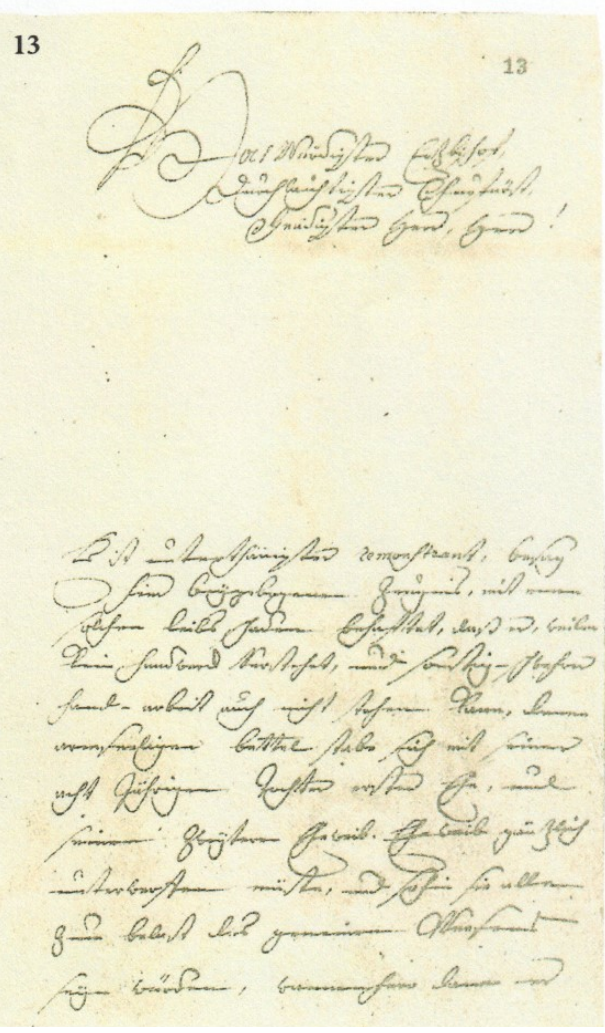 13
13
Hochwürdigster Ertzbischof,
Durchläuchtigster Churfürst,
Gnädigster Herr, Herr!
Es ist unterthänigster remonstrant, besag
hie beygebogenen Zeugnis, mit einem
solchen leibs schaden behafftet, daß er, weilen
kein handwerck verstehet, und sonstig-
hand-arbeit auch nicht stehen kann, dem
armseeligen bettel stabe sich mit seiner
acht Jährigen Tochter erster Ehe, und
seinem zweyteren Eheweib gäntzlich
unterwerffen müste, und sie alle
zum last des gemeinen Weesens
seyn würden, dann